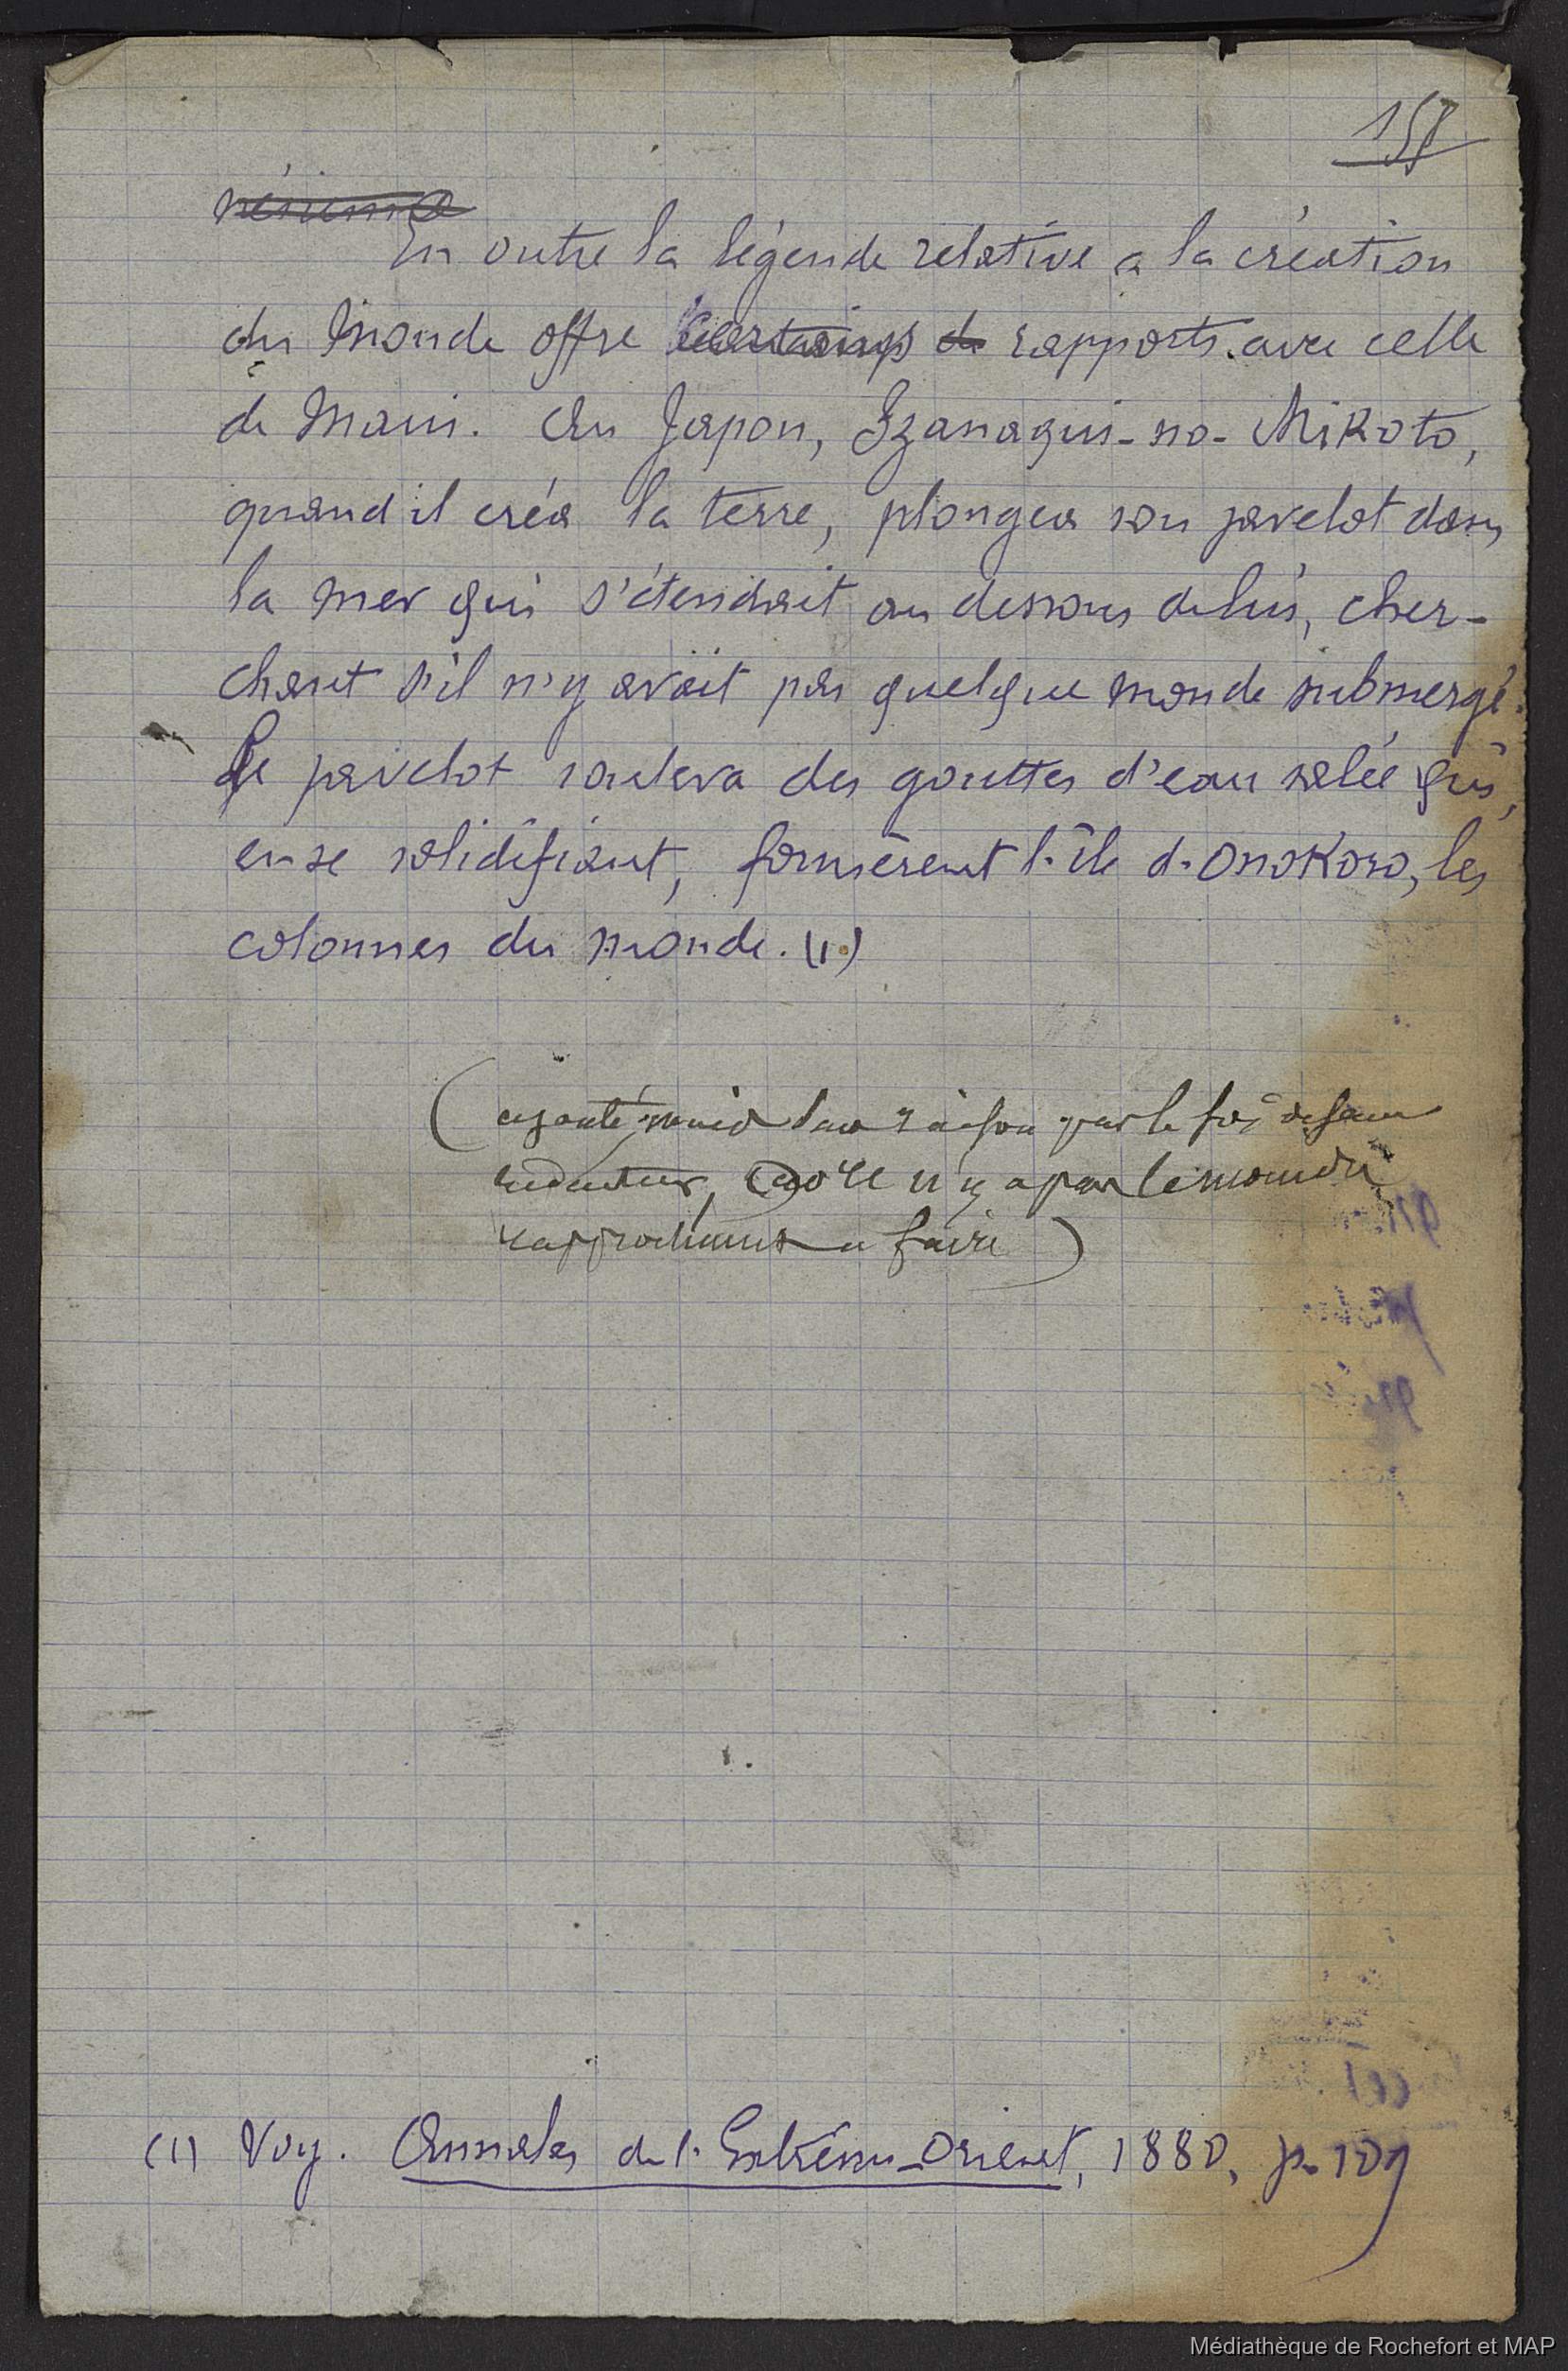 158
résumé
En outre la légende relative a la création
du Monde offre certains de rapports avec celle
de Maui. Au Japon, Izanagui-no-Mikoto,
quand il créa la terre, plongea son javelot dans
la mer qui s'étendait au dessous de lui, cher-
chant s'il n'y avait pas quelque monde submergé.
Le javelot souleva des gouttes d'eau salée qui,
en se solidifiant, formèrent l'île d'Onokoro, les
colonnes du monde. (1)
(ajouté, mais sans raison par le
rédacteur, il n'y a pas le moindre
rapprochement a faire)
(1) Voy. Annales de l'Extrême-Orient, 1880, p. 109
Médiathèque de Rochefort et MAP